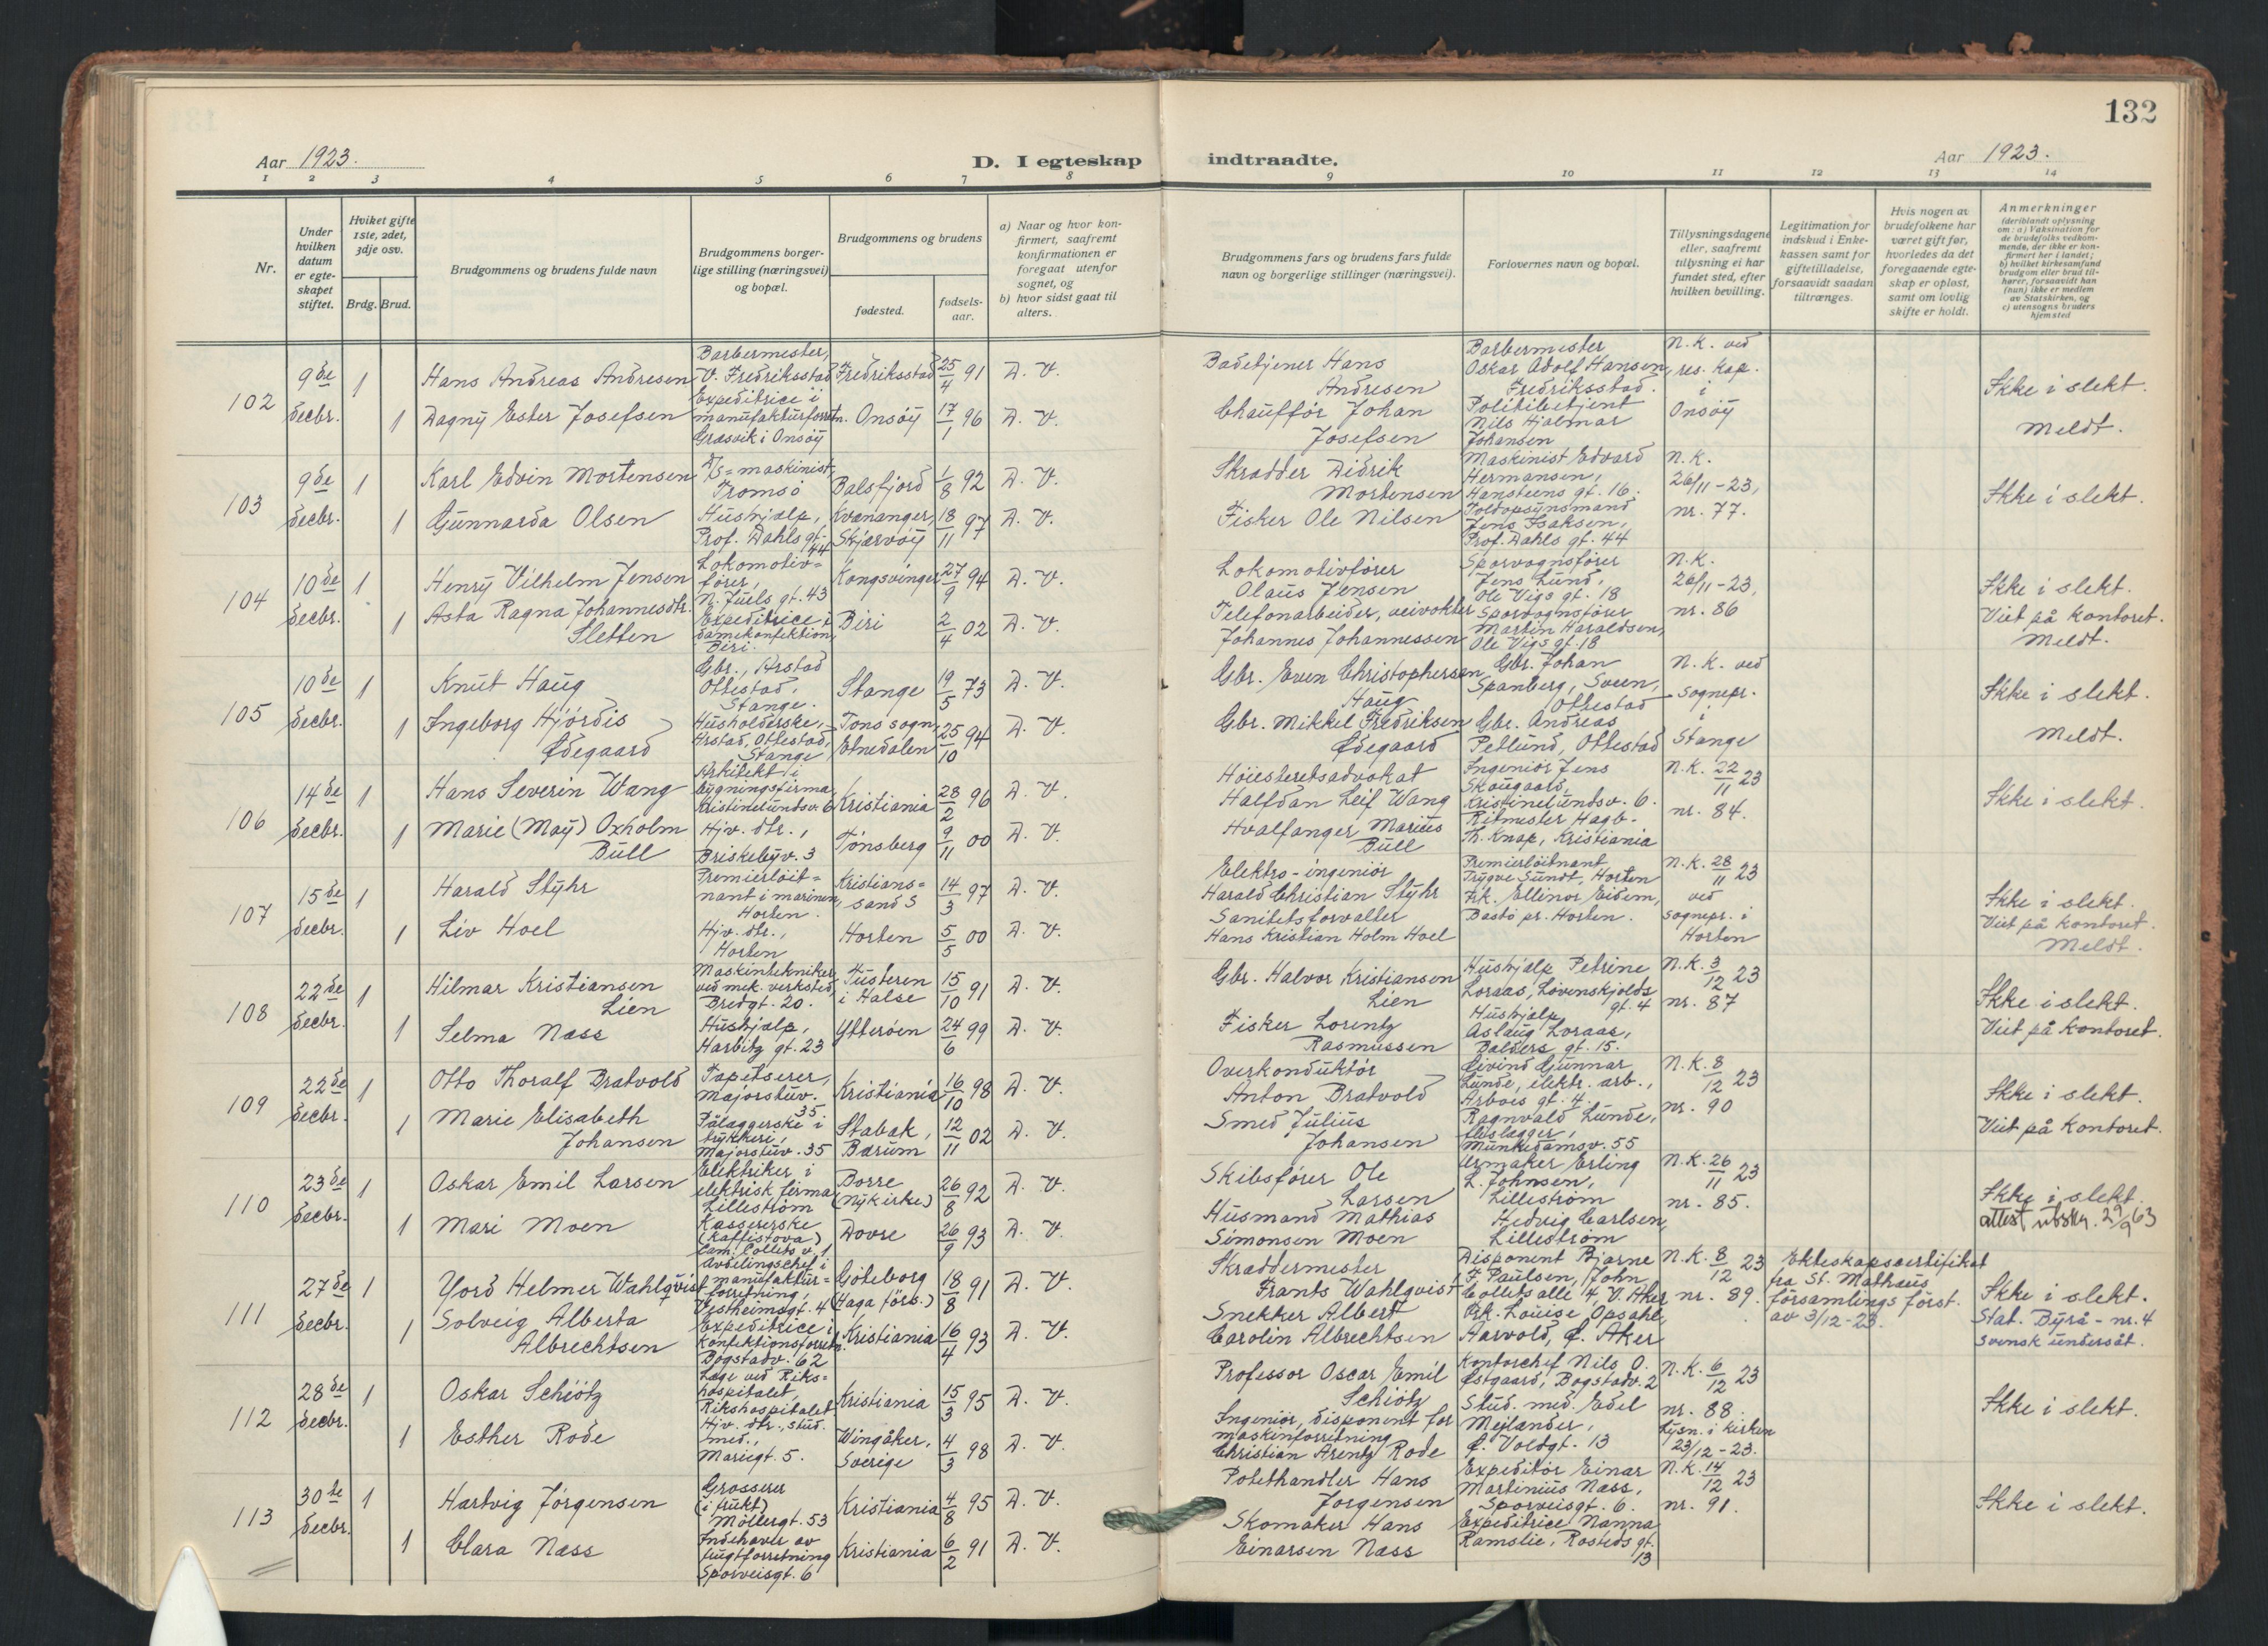 132
Aar 1923.
D. I egteskap indtraadte.
Aar 1923.
1 2 3 4 5 6 7 8 9 10 11 12 13 14
Nr.
Under hvilken datum er egteskapet stiftet.
Hviket gifte 1ste, 2det, 3dje osv.
Brdg. Brud.
Brudgommens og brudens fulde navn
Brudgommens borgerlige stilling (næringsvei) og bopæl.
Brudgommens og brudens
fødested.
fødselsaar.
a) Naar og hvor konfirmert, saafremt konfirmationen er foregaat utenfor sognet, og
b) hvor sidst gaat til alters.
Brudgommens fars og brudens fars fulde navn og borgerlige stillinger (næringsvei).
Forlovernes navn og bopæl.
Tillysningsdagene eller, saafremt tillysning ei har fundet sted, efter hvilken bevilling.
Legitimation for indskud i Enkekassen samt for giftetilladelse, forsaavidt saadan tiltrænges.
Hvis nogen av brudefolkene har været gift før, hvorledes da det foregaaende egteskap er opløst, samt om lovlig skifte er holdt.
Anmerkninger
(deriblandt oplysning om: a) Vaksination for de brudefolks vedkommende, der ikke er konfirmert her i landet; b) hvilket kirkesamfund brudgom eller brud tilhører, forsaavidt han (hun) ikke er medlem av Statskirken, og c) utensogns bruders hjemsted
102
9de decbr.
1
Hans Andreas Andresen
Barbermester, V. Fredriksstad
Fredriksstad
25/4 91
D. V.
1
Dagny Ester Josefsen
Expeditrice i manufakturforretn. Græsvik i Onsöy
Onsöy
17/1 96
D. V.
Badetjener Hans Andresen
Chaufför Johan Josefsen
Barbermester Oskar Adolf Hansen, Fredriksstad.
Politibetjent Nils Hjalmar Johansen
N.K. ved res. kap. i Onsöy
Ikke i slekt.
Meldt.
103
9de decbr.
1
Karl Edvin Mortensen
D/S=maskinist, Tromsö
Balsfjord
1/8 92
D. V.
1
Gunnarda Olsen
Hushjælp, Prof. Dahls gt. 44
Kvænanger, Skjærvöy
18/11 97
D. V.
Skrædder Didrik Mortensen
Fisker Ole Nilsen
Maskinist Edvard Hermansen, Hansteens gt. 16.
Toldopsynsmand Jens Isaksen, Prof. Dahls gt. 44
N.K. 26/11-23, nr. 77.
Ikke i slekt.
104
10de decbr.
1
Henry Vilhelm Jensen
Lokomotivförer, N. Juels gt. 43
Kongsvinger
27/9 94
D. V.
1
Asta Ragna Johannesdtr. Sletten
Expeditrice i damekonfektion, Biri.
Biri
2/4 02
D. V.
Lokomotivförer Olaus Jensen
Telefonarbeider, veivokter Johannes Johannessen
Sporvognsförer Jens Lund, Ole Vigs gt. 18
Sporvognsförer Martin Haraldsen, Ole Vigs gt. 18
N.K. 26/11-23, nr. 86
Ikke i slekt.
Viet på kontoret.
Meldt.
105
10de decbr.
1
Knut Haug
Gbr., Arstad Ottestad, Stange.
Stange
19/5 73
D. V.
1
Ingeborg Hjördis Ødegaard
Husholderske, Arstad, Ottestad, Stange
Tons sogn, Etnedalen
25/10 94
D. V.
Gbr. Even Christophersen Haug
Gbr. Mikkel Fredriksen Ødegaard
Gbr. Johan Spanberg, Sveen, Ottestad
Gbr. Andreas Petlund, Ottestad
N.K. ved sognepr. i Stange
Ikke i slekt.
Meldt.
106
14de decbr.
1
Hans Severin Wang
Arkitekt i bygningsfirma, Kristinelundsv. 6
Kristiania
28/2 96
D. V.
1
Marie (May) Oxholm Bull
Hjv. dtr., Briskebyv. 3
Tönsberg
9/11 00
D. V.
Höiesteretsadvokat Halfdan Leif Wang
Hvalfanger Marius Bull
Ingeniör Jens Skougaard, Kristinelundsv. 6.
Ritmester Hagb. Th. Knap, Kristiania
N.K. 22/11 23 nr. 84.
Ikke i slekt.
107
15de decbr.
1
Harald Styhr
Premierlöitnant i marinen, Horten.
Kristianssand S
14/3 97
D. V.
1
Liv Hoel
Hjv. dtr., Horten
Horten
5/5 00
D. V.
Elektro-ingeniör Harald Christian Styhr
Sanitetsforvalter Hans Kristian Holm Hoel
Premierlöitnant Trygve Sundt, Horten
Frk. Ellinor Eidem, Bastö pr. Horten.
N.K. 28/11 23 ved sognepr. i Horten
Ikke i slekt.
Viet på kontoret.
Meldt.
108
22de decbr.
1
Hilmar Kristiansen Lien
Maskintekniker ved mek. verksted, Bredgt. 20.
Tusteren i Halse
15/10 91
D. V.
1
Selma Næss
Hushjælp, Harbitz gt. 23
Ytteröen
24/6 99
D. V.
Gbr. Halvor Kristiansen Lien
Fisker Lorentz Rasmussen
Hushjælp Petrine Loraas, Lövenskjolds gt. 4
Hushjælp Aslaug Loraas, Balders gt. 15.
N.K. 3/12 23 nr. 87
Ikke i slekt.
Viet på kontoret.
109
22de decbr.
1
Otto Thoralf Bratvold
Tapetserer, Majorstuv. 35.
Kristiania
16/10 98
D. V.
1
Marie Elisabeth Johansen
Pålæggerske i trykkeri, Majorstuv. 35
Stabæk, Bærum
12/11 02
D. V.
Overkonduktör Anton Bratvold
Smed Julius Johansen
Eivind Gunnar Lunde, elektr. arb., Arbos gt. 4.
Ragnvald Lunde, Munkedamsv. 55
N.K. 8/12 23 nr. 90
Ikke i slekt.
Viet på kontoret.
110
23de decbr.
1
Oskar Emil Larsen
Elektriker i elektrisk firma Lilleström
Borre (Nykirke)
26/8 92
D. V.
1
Mari Moen
Kassererske (Kaffistova) Cam. Colletts v. 1
Dovre
26/9 93
D. V.
Skibsförer Ole Larsen
Husmand Mathias Simonsen Moen
Urmaker Erling L. Johnsen, Lilleström
Hedvig Carlsen, Lilleström
N.K. 26/11 23 nr. 85.
Ikke i slekt.
attest utskr. 29/9 63
111
27de decbr.
1
Yord Helmer Wahlqvist
Avdelingschef i manufakturforretning, Vestheimsgt. 4
Göteborg (Haga förs.)
18/8 91
D. V.
1
Solveig Alberta Albrechtsen
Expeditrice i konfektionsforretn. Bogstadv. 62
Kristiania
16/4 93
D. V.
Skræddermester Frants Wahlqvist
Snekker Albert Carolin Albrechtsen
Disponent Bjarne F. Paulsen, John Colletts alle 4, V. Aker
Frk. Louise Opsahl, Aarvold, Ø. Aker
N.K. 8/12 23 nr. 89.
Ekteskapscertifikat fra St. Mathæus församlings först. av 3/12-23.
Ikke i slekt.
Stat. Byrå - nr. 4
svensk undersåt.
112
28de decbr.
1
Oskar Schiötz
Læge ved Rikshospitalet, Rikshospitalet.
Kristiania
15/3 95
D. V.
1
Esther Rode
Hjv. dtr., stud. med., Mariegt. 5.
Wingåker, Sverige
4/3 98
D. V.
Professor Oscar Emil Schiötz
Ingeniör, disponent for maskinforretning Christian Arentz Rode
Kontorchef Nils O. Østgaard, Bogstadv. 2
Stud. med. Edel Mejlænder, Ø. Voldgt. 13
N.K. 6/12 23 nr. 88.
Lysn. i kirken 23/12-23.
Ikke i slekt.
113
30te decbr.
1
Hartvig Jörgensen
Grosserer (i frukt) Möllergt. 53
Kristiania
4/8 95
D. V.
1
Clara Næss
Indehaver av frugtforretning Sporveisgt. 6
Kristiania
6/2 91
D. V.
Potethandler Hans Jörgensen
Skomaker Hans Einarsen Næss
Expeditör Einar Martinius Næss, Sporveisgt. 6.
Expeditrice Nanna Ramslie, Rosteds gt. 13
N.K. 14/12 23 nr. 91.
Ikke i slekt.